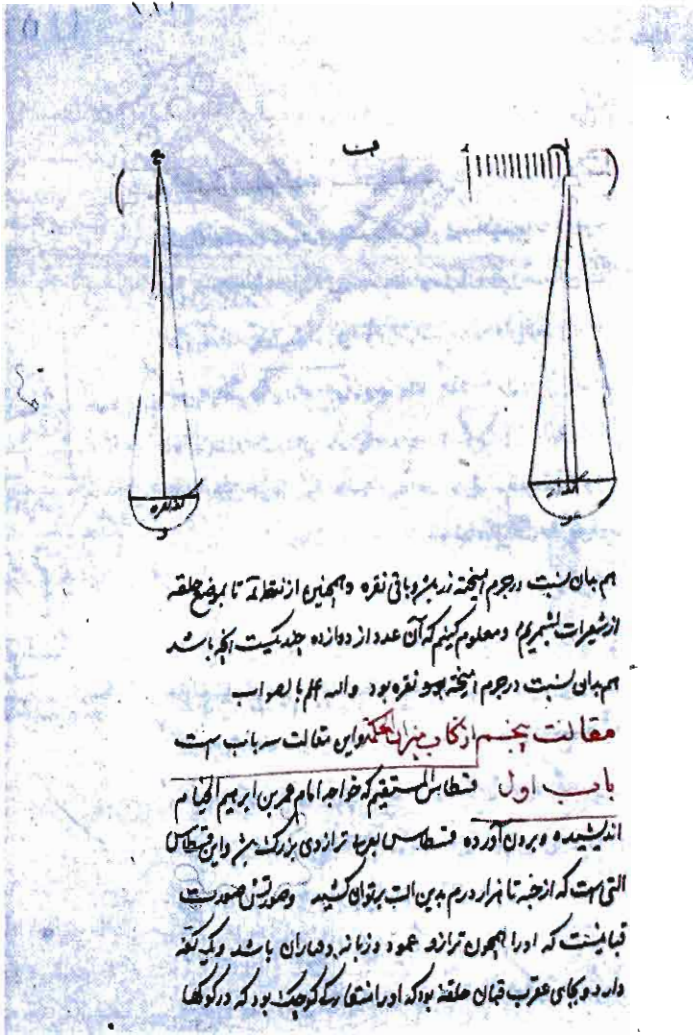 هم بدان نسبت در جرم آمیخته زر بود و باقی نقره و همچنین از نقطه تا بموضع حلقه
از شعیرات بشمریم و معلوم کنیم که آن عدد از دوازده چند یکست آنچه باشد
هم بدان نسبت در جرم آمیخته نقره بود والله اعلم بالصواب
مقالت پنجم از کتاب میزان الحکمة و این مقالت سه باب است
باب اول قسطاس المستقیم که خواجه امام عمر بن ابرهیم الخیام
اندیشیده و برون آورده قسطاس ترازوی بزرگ و این قسطاس
التی است که از حبه تا هزار درم بدین الت برتوان کشید و صورتش صورت
قبانیست که او را همچون ترازو عمود و زبانه و باشد و یک کفه
دارد و بجای عقرب قبان حلقه بود که او را کوچک بود که در